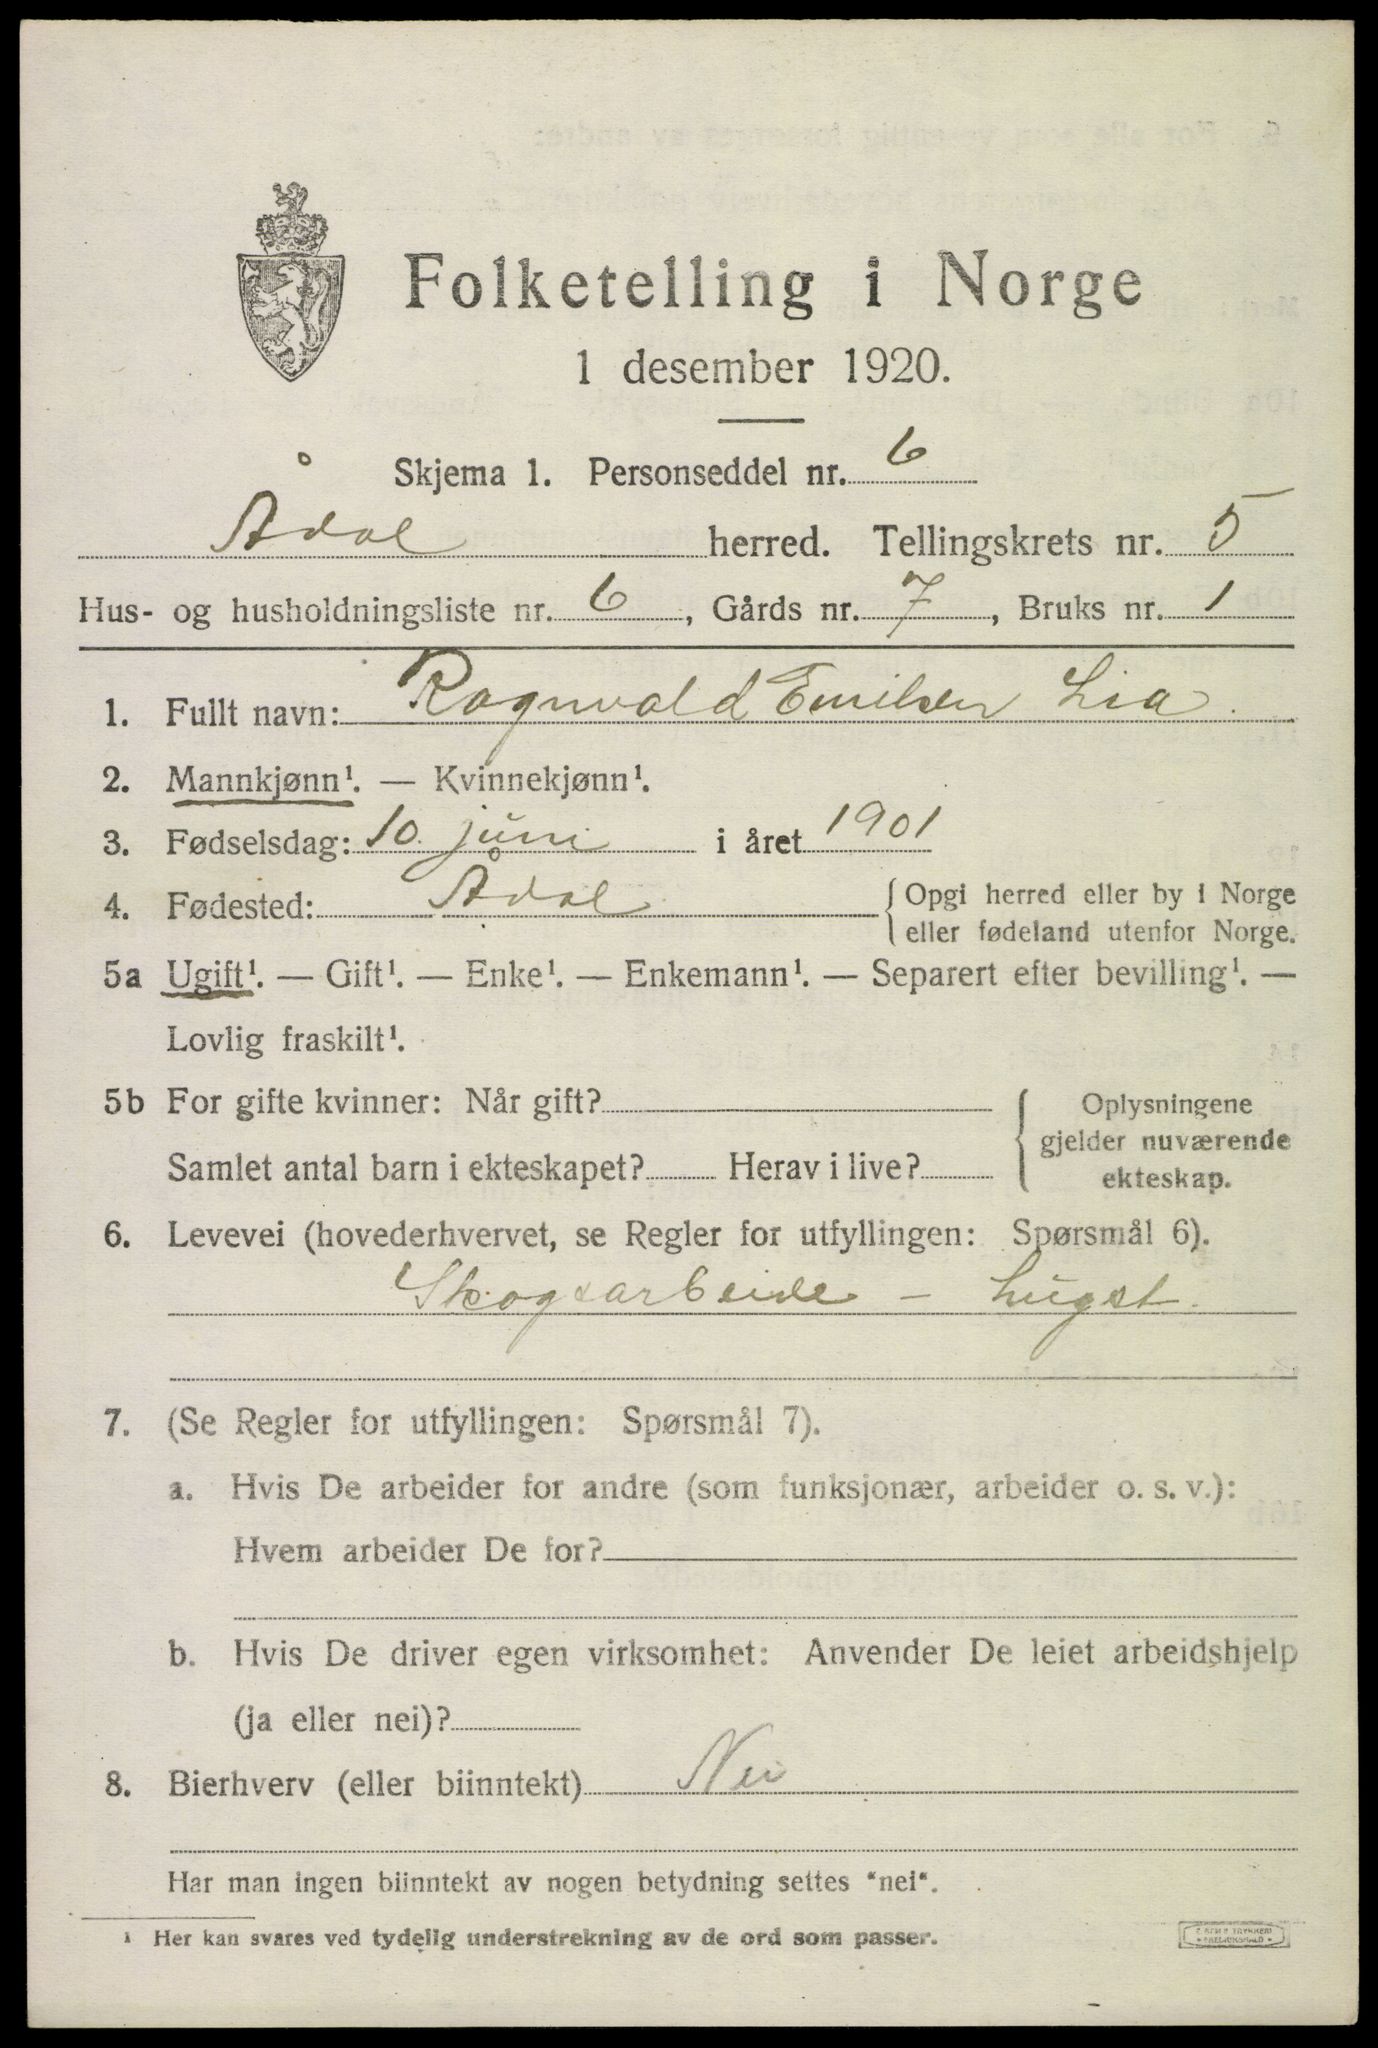 Folketelling i Norge
1 desember 1920.
Skjema 1. Personseddel nr. 6
Ådal herred. Tellingskrets nr. 5
Hus- og husholdningsliste nr. 6, Gårds nr. 7, Bruks nr. 1
1. Fullt navn: Ragnvald Emilsen Lia.
2. Mannkjønn¹. — Kvinnekjønn¹.
3. Fødselsdag: 10. juni i året 1901
4. Fødested: Ådal { Opgi herred eller by i Norge
eller fødeland utenfor Norge.
5a Ugift¹. — Gift¹. — Enke¹. — Enkemann¹. — Separert efter bevilling¹. —
Lovlig fraskilt¹.
5b For gifte kvinner: Når gift?
Samlet antal barn i ekteskapet? Herav i live?
{ Oplysningene
gjelder nuværende
ekteskap.
6. Levevei (hovederhvervet, se Regler for utfyllingen: Spørsmål 6).
Skogsarbeide – Tømmerhugst
7. (Se Regler for utfyllingen: Spørsmål 7).
a. Hvis De arbeider for andre (som funksjonær, arbeider o. s. v.):
Hvem arbeider De for?
b. Hvis De driver egen virksomhet: Anvender De leiet arbeidshjelp
(ja eller nei)?
8. Bierhverv (eller biinntekt) Nei
Har man ingen biinntekt av nogen betydning settes "nei".
¹ Her kan svares ved tydelig understrekning av de ord som passer.